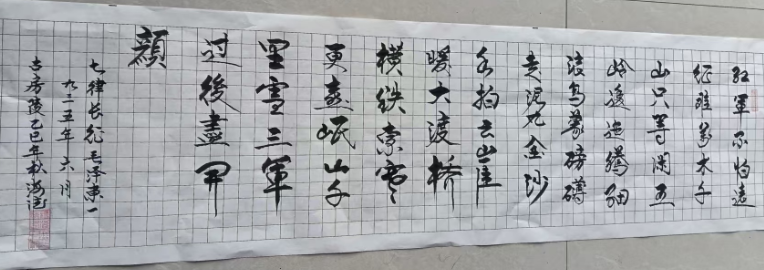 紅軍不怕遠
征难萬水千
山只等闲五
岭逶迤腾细
浪乌蒙磅礴
走泥丸金沙
水拍云崖
暖大渡橋
横铁索寒
更喜岷山千
里雪三軍
过後盡開
顔
七律长征毛泽东一
九三五年六月
古房陵乙巳年秋